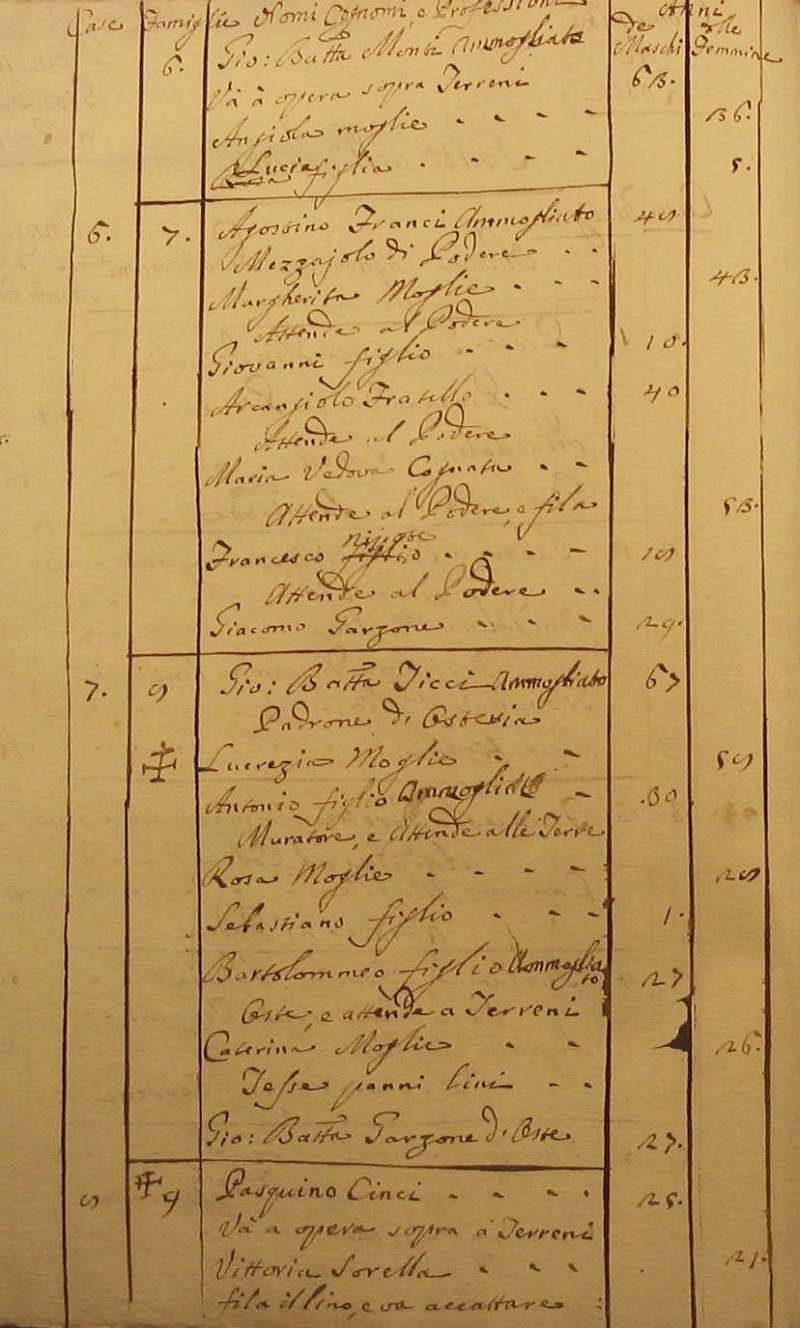 Case Famiglie Nomi Cognomi, e Professioni Anni
de Maschi delle Femmine
6. Gio: Batta Monti Ammogliato 63.
Và à opera sopra Terreni
Angiola moglie 36.
Lucia figlia 5.
6. 7. Agostino Franci Ammogliato 48
Mezzajolo di Podere
Margherita Moglie 43.
Attende al Podere
Giovanni figlio 10.
Arcangiolo Fratello 40
Attende al Podere
Maria Vedova Cognata
Attende al Podere, e fila 53.
Francesco figlio nipote 18
Attende al Podere
Giacomo Garzone 29.
7. 8 Gio: Batta Ticci Ammogliato 67
Padrone d'Osteria
Lucrezia Moglie 58
Antonio figlio Ammogliato 30
Muratore, e Attende alle Terre
Rosa Moglie 28
Sebastiano figlio 1.
Bartolommeo figlio Ammogliato 27
Oste, e attende a Terreni
Caterina Moglie 26.
Tesse panni lini
Gio: Batta Garzone d'Oste 27.
8 9 Pasquino Cinci 25.
Và a opera sopra a Terreni
Vittoria Sorella 21.
fila il lino, e va accattare